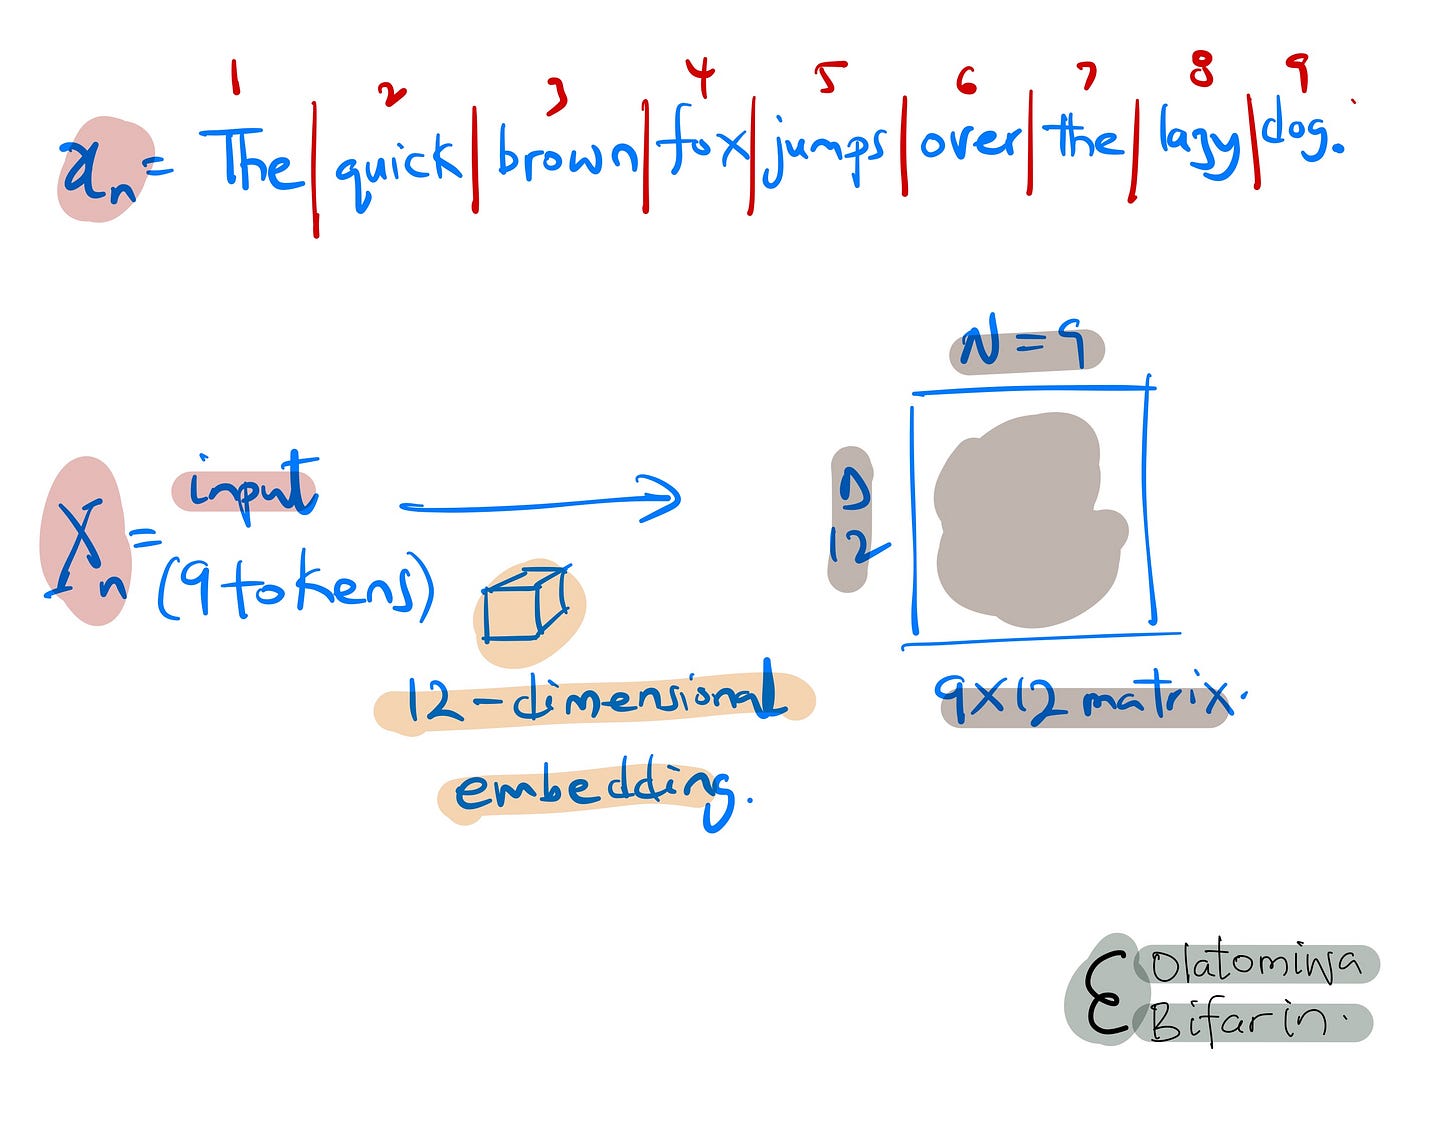 1 2 3 4 5 6 7 8 9
xn = The | quick | brown | fox | jumps | over | the | lazy | dog.
N = 9
Xn = input
(9 tokens)
D
12
12-dimensional
embedding.
9X12 matrix.
Olatomiwa
Bifarin.